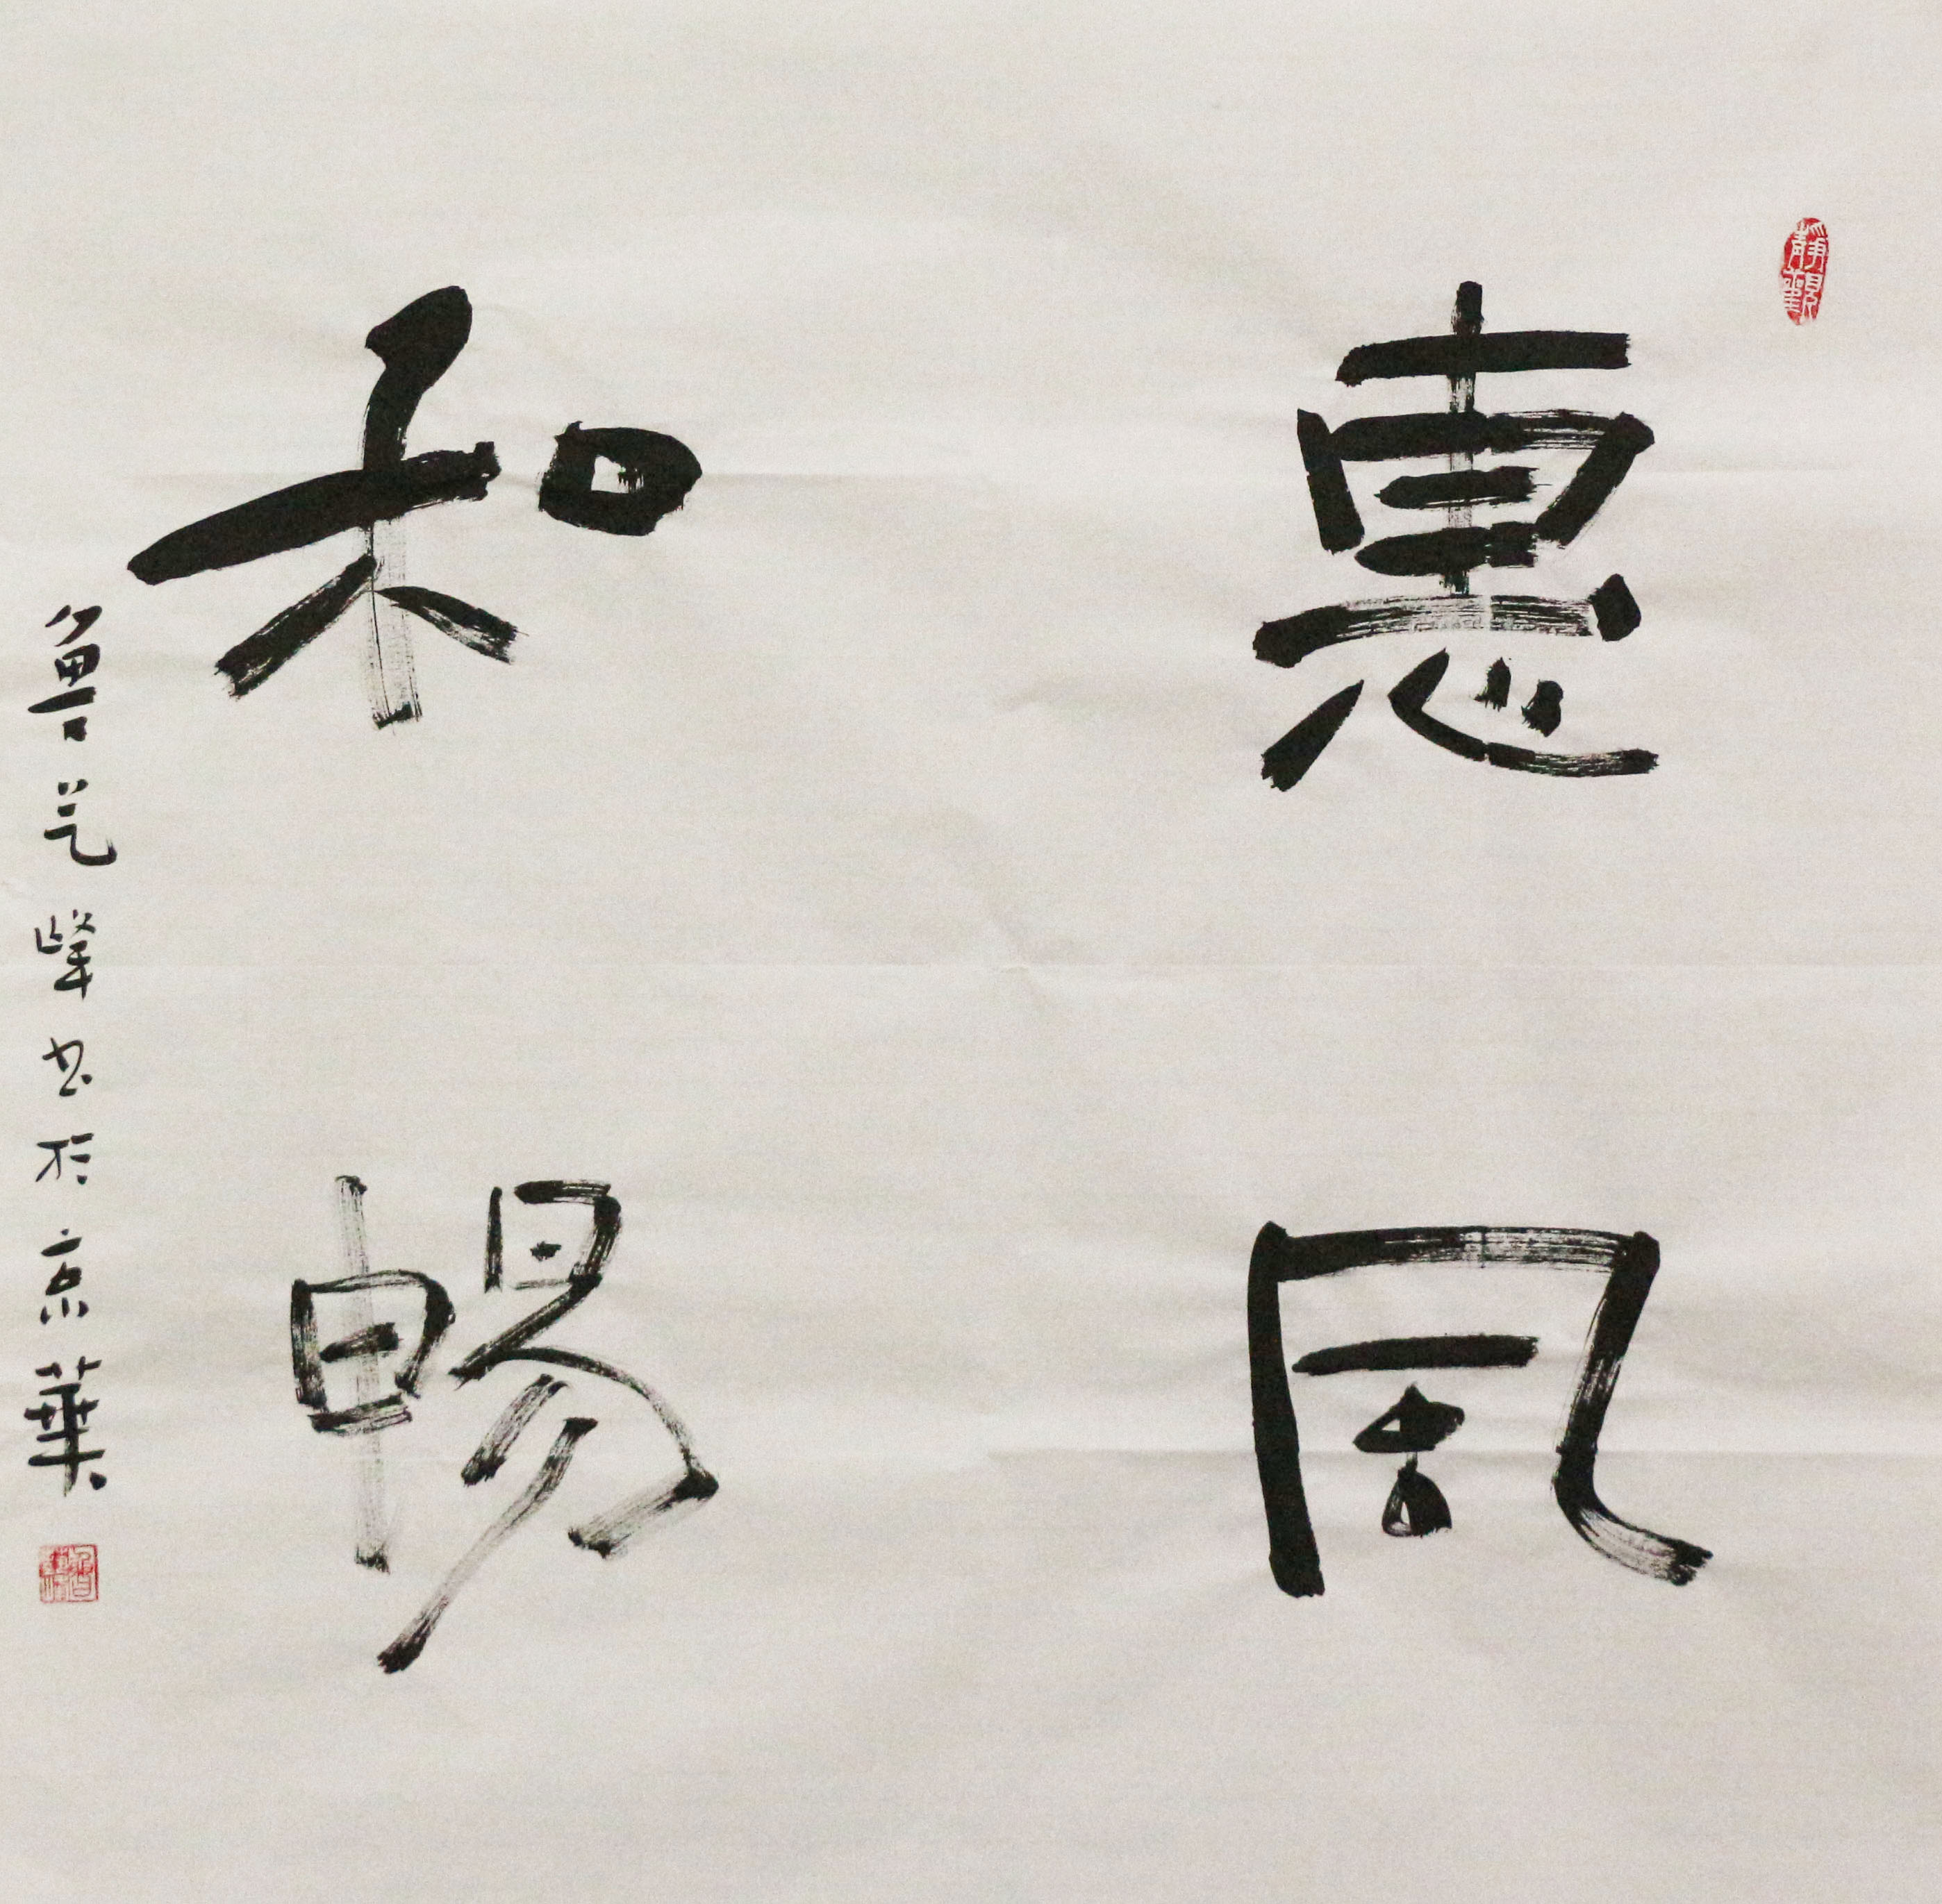 惠風
和暢
魯芝峰书於京華
靜觀